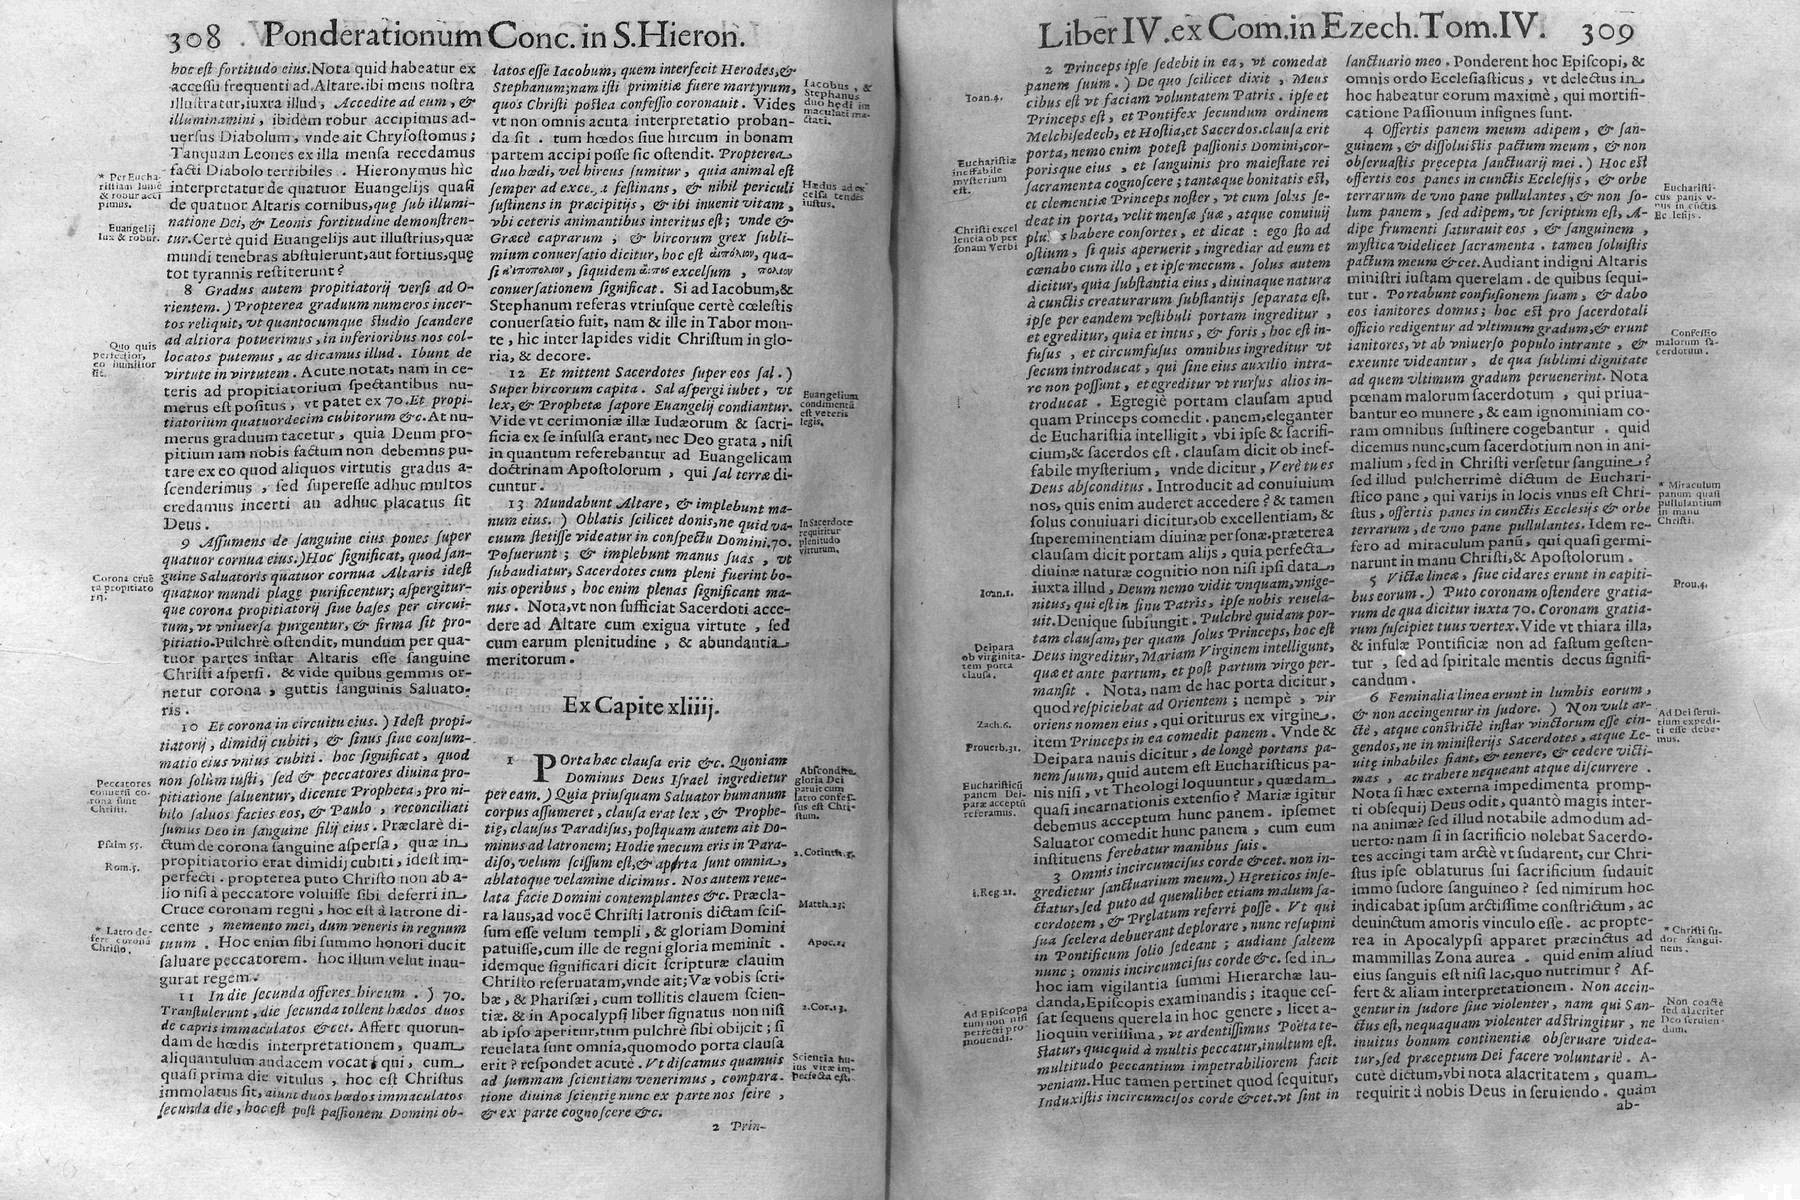 308 Ponderationum Conc. in S. Hieron.
hoc est fortitudo eius. Nota quid habeatur ex
accessu frequenti ad Altare. ibi mens nostra
illustratur, iuxta illud, Accedite ad eum, &
illuminamini, ibidem robur accipimus ad-
uersus Diabolum, vnde ait Chrysostomus;
Tanquam Leones ex illa mensa recedamus
facti Diabolo terribiles. Hieronymus hic
interpretatur de quatuor Euangelijs quasi
de quatuor Altaris cornibus, quę sub illumi-
natione Dei, & Leonis fortitudine demonstren-
tur. Certè quid Euangelijs aut illustrius, quæ
mundi tenebras abstulerunt, aut fortius, quę
tot tyrannis restiterunt?
8 Gradus autem propitiatorij versi ad O-
rientem.) Propterea graduum numeros incer-
tos reliquit, vt quantocumque studio scandere
ad altiora potuerimus, in inferioribus nos col-
locatos putemus, ac dicamus illud. Ibunt de
virtute in virtutem. Acute notat, nam in ce-
teris ad propitiatorium spectantibus nu-
merus est positus, vt patet ex 70. Et propi-
tiatorium quatuordecim cubitorum &c. At nu-
merus graduum tacetur, quia Deum pro-
pitium iam nobis factum non debemus pu-
tare ex eo quod aliquos virtutis gradus a-
scenderimus, sed superesse adhuc multos
credamus incerti an adhuc placatus sit
Deus.
9 Assumens de sanguine eius pones super
quatuor cornua eius.) Hoc significat, quod san-
guine Saluatoris quatuor cornua Altaris idest
quatuor mundi plagę purificentur; aspergitur-
que corona propitiatorij siue bases per circui-
tum, vt vniuersa purgentur, & firma sit pro-
pitiatio. Pulchrè ostendit, mundum per qua-
tuor partes instar Altaris esse sanguine
Christi aspersi. & vide quibus gemmis or-
netur corona, guttis sanguinis Saluato-
ris.
10 Et corona in circuitu eius.) Idest propi-
tiatorij, dimidij cubiti, & sinus siue consum-
matio eius vnius cubiti. hoc significat, quod
non solùm iusti, sed & peccatores diuina pro-
pitiatione saluentur, dicente Propheta, pro ni-
hilo saluos facies eos, & Paulo, reconciliati
sumus Deo in sanguine filij eius. Præclarè di-
ctum de corona sanguine aspersa, quæ in
propitiatorio erat dimidij cubiti, idest im-
perfecti. propterea puto Christo non ab a-
lio nisi à peccatore voluisse sibi deferri in
Cruce coronam regni, hoc est à latrone di-
cente, memento mei, dum veneris in regnum
tuum. Hoc enim sibi summo honori ducit
saluare peccatorem. hoc illum velut inau-
gurat regem.
11 In die secunda offeres hircum.) 70.
Transtulerunt, die secunda tollent hædos duos
de capris immaculatos &cet. Affert quorun-
dam de hœdis interpretationem, quam
aliquantulum audacem vocat; qui, cum
quasi prima die vitulus, hoc est Christus
immolatus sit, aiunt duos hædos immaculatos
secunda die, hoc est post passionem Domini ob-
* Per Eucha-
ristiam lumē
& robur acci
pimus.
Euangelij
lux & robur.
Quo quis
perfectior,
eo humilior
sit.
Corona cruē
ta propitiato
rij.
Peccatores
conuersi co-
rona sunt
Christi.
Psalm 55.
Rom. 5.
* Latro de-
fert coronā
Christo.
latos esse Iacobum, quem interfecit Herodes, &
Stephanum; nam isti primitiæ fuere martyrum,
quos Christi postea confessio coronauit. Vides
vt non omnis acuta interpretatio proban-
da sit. tum hœdos siue hircum in bonam
partem accipi posse sic ostendit. Propterea
duo hædi, vel hircus sumitur, quia animal est
semper ad excelsa festinans, & nihil periculi
sustinens in præcipitijs, & ibi inuenit vitam,
vbi ceteris animantibus interitus est; vnde &
Græcè caprarum, & hircorum grex subli-
mium conuersatio dicitur, hoc est αἰπόλιον, qua-
si αἰποπολιον, siquidem αἶπος excelsum, πολιον
conuersationem significat. Si ad Iacobum, &
Stephanum referas vtriusque certè cœlestis
conuersatio fuit, nam & ille in Tabor mon-
te, hic inter lapides vidit Christum in glo-
ria, & decore.
12 Et mittent Sacerdotes super eos sal.)
Super hircorum capita. Sal aspergi iubet, vt
lex, & Prophetæ sapore Euangelij condiantur.
Vide vt cerimoniæ illæ Iudæorum & sacri-
ficia ex se insulsa erant, nec Deo grata, nisi
in quantum referebantur ad Euangelicam
doctrinam Apostolorum, qui sal terræ di-
cuntur.
13 Mundabunt Altare, & implebunt ma-
num eius.) Oblatis scilicet donis, ne quid va-
cuum stetisse videatur in conspectu Domini. 70.
Posuerunt; & implebunt manus suas, vt
subaudiatur, Sacerdotes cum pleni fuerint bo-
nis operibus, hoc enim plenas significant ma-
nus. Nota, vt non sufficiat Sacerdoti acce-
dere ad Altare cum exigua virtute, sed
cum earum plenitudine, & abundantia
meritorum.
Ex Capite xliiij.
1 POrta hæc clausa erit &c. Quoniam
Dominus Deus Israel ingredietur
per eam.) Quia priusquam Saluator humanum
corpus assumeret, clausa erat lex, & Prophe-
tię, clausus Paradisus, postquam autem ait Do-
minus ad latronem; Hodie mecum eris in Para-
diso, velum scissum est, & aperta sunt omnia,
ablatoque velamine dicimus. Nos autem reue-
lata facie Domini contemplantes &c. Præcla-
ra laus, ad vocē Christi latronis dictam scis-
sum esse velum templi, & gloriam Domini
patuisse, cum ille de regni gloria meminit.
idemque significari dicit scripturæ clauim
Christo reseruatam, vnde ait; Væ vobis scri-
bæ, & Pharisæi, cum tollitis clauem scien-
tiæ. & in Apocalypsi liber signatus non nisi
ab ipso aperitur, tum pulchrè sibi obijcit; si
reuelata sunt omnia, quomodo porta clausa
erit? respondet acutè. Vt discamus quamuis
ad summam scientiam venerimus, compara-
tione diuinæ scientię nunc ex parte nos scire,
& ex parte cognoscere &c.
2 Prin-
Iacobus, &
Stephanus
duo hędi im
maculati ma-
ctati.
Hædus ad ex
celsa tendēs
iustus.
Euangelium
condimentū
est veteris
legis.
In Sacerdote
requiritur
plenitudo
virtutum.
Abscondita
gloria Dei
patuit cum
latro confes-
sus est Chri-
stum.
2. Corinth. 3.
Matth. 23.
Apoc.
2. Cor. 13.
Scientia hu-
ius vitæ im-
perfecta est.
Liber IV. ex Com. in Ezech. Tom. IV. 309
2 Princeps ipse sedebit in ea, vt comedat
panem suum.) De quo scilicet dixit, Meus
cibus est vt faciam voluntatem Patris. ipse et
Princeps est, et Pontifex secundum ordinem
Melchisedech, et Hostia, et Sacerdos. clausa erit
porta, nemo enim potest passionis Domini, cor-
porisque eius, et sanguinis pro maiestate rei
sacramenta cognoscere; tantæque bonitatis est,
et clementiæ Princeps noster, vt cum solus se-
deat in porta, velit mensæ suæ, atque conuiuij
plures habere consortes, et dicat: ego sto ad
ostium, si quis aperuerit, ingrediar ad eum et
cœnabo cum illo, et ipse mecum. solus autem
dicitur, quia substantia eius, diuinaque natura
à cunctis creaturarum substantijs separata est.
ipse per eandem vestibuli portam ingreditur,
et egreditur, quia et intus, & foris, hoc est in-
fusus, et circumfusus omnibus ingreditur vt
secum introducat, qui sine eius auxilio intra-
re non possunt, et egreditur vt rursus alios in-
troducat. Egregiè portam clausam apud
quam Princeps comedit. panem, eleganter
de Eucharistia intelligit, vbi ipse & sacrifi-
cium, & sacerdos est. clausam dicit ob inef-
fabile mysterium, vnde dicitur, Verè tu es
Deus absconditus. Introducit ad conuiuium
nos, quis enim auderet accedere? & tamen
solus conuiuari dicitur, ob excellentiam, &
supereminentiam diuinæ personæ. præterea
clausam dicit portam alijs, quia perfecta
diuinæ naturæ cognitio non nisi ipsi data,
iuxta illud, Deum nemo vidit vnquam, vnige-
nitus, qui est in sinu Patris, ipse nobis reuela-
uit. Denique subiungit. Pulchrè quidam por-
tam clausam, per quam solus Princeps, hoc est
Deus ingreditur, Mariam Virginem intelligunt,
quæ et ante partum, et post partum virgo per-
mansit. Nota, nam de hac porta dicitur,
quod respiciebat ad Orientem; nempè, vir
oriens nomen eius, qui oriturus ex virgine.
item Princeps in ea comedit panem. Vnde &
Deipara nauis dicitur, de longè portans pa-
nem suum, quid autem est Eucharisticus pa-
nis nisi, vt Theologi loquuntur, quædam
quasi incarnationis extensio? Mariæ igitur
debemus acceptum hunc panem. ipsemet
Saluator comedit hunc panem, cum eum
instituens ferebatur manibus suis.
3 Omnis incircumcisus corde &cet. non in-
gredietur sanctuarium meum.) Hęreticos inse-
ctatur, sed puto ad quemlibet etiam malum sa-
cerdotem, & Prelatum referri posse. Vt qui
sua scelera debuerant deplorare, nunc resupini
in Pontificum solio sedeant; audiant saltem
nunc; omnis incircumcisus corde &c. sed in
hoc iam vigilantia summi Hierarchæ lau-
danda, Episcopis examinandis; itaque ces-
sat sequens querela in hoc genere, licet a-
lioquin verissima, vt ardentissimus Poeta te-
statur, quicquid à multis peccatur, inultum est.
multitudo peccantium impetrabiliorem facit
veniam. Huc tamen pertinet quod sequitur,
Induxistis incircumcisos corde &cet. vt sint in
Ioan. 4.
Eucharistiæ
ineffabile
mysterium
est.
Christi excel
lentia ob per
sonam Verbi
Ioan. 1.
Deipara
ob virginita-
tem porta
clausa.
Zach. 6.
Prouerb. 31.
Eucharisticū
panem Dei-
paræ acceptū
referamus.
1. Reg. 21.
Ad Episcopa
tum non nisi
perfecti pro-
mouendi.
sanctuario meo. Ponderent hoc Episcopi, &
omnis ordo Ecclesiasticus, vt delectus in
hoc habeatur eorum maximè, qui mortifi-
catione Passionum insignes sunt.
4 Offertis panem meum adipem, & san-
guinem, & dissoluistis pactum meum, & non
obseruastis pręcepta sanctuarij mei.) Hoc est
offertis eos panes in cunctis Ecclesijs, & orbe
terrarum de vno pane pullulantes, & non so-
lum panem, sed adipem, vt scriptum est, A-
dipe frumenti saturauit eos, & sanguinem,
mystica videlicet sacramenta. tamen soluistis
pactum meum &cet. Audiant indigni Altaris
ministri iustam querelam. de quibus sequi-
tur. Portabunt confusionem suam, & dabo
eos ianitores domus; hoc est pro sacerdotali
officio redigentur ad vltimum gradum, & erunt
ianitores, vt ab vniuerso populo intrante, &
exeunte videantur, de qua sublimi dignitate
ad quem vltimum gradum peruenerint. Nota
pœnam malorum sacerdotum, qui priua-
bantur eo munere, & eam ignominiam co-
ram omnibus sustinere cogebantur. quid
dicemus nunc, cum sacerdotium non in ani-
malium, sed in Christi versetur sanguine?
sed illud pulcherrimè dictum de Euchari-
stico pane, qui varijs in locis vnus est Chri-
stus, offertis panes in cunctis Ecclesijs & orbe
terrarum, de vno pane pullulantes. Idem re-
fero ad miraculum panū, qui quasi germi-
narunt in manu Christi, & Apostolorum.
5 Victæ lineæ, siue cidares erunt in capiti-
bus eorum.) Puto coronam ostendere gratia-
rum de qua dicitur iuxta 70. Coronam gratia-
rum suscipiet tuus vertex. Vide vt thiara illa,
& infulæ Pontificiæ non ad fastum gesten-
tur, sed ad spiritale mentis decus signifi-
candum.
6 Feminalia linea erunt in lumbis eorum,
& non accingentur in sudore.) Non vult ar-
ctè, atque constrictè instar vinctorum esse cin-
gendos, ne in ministerijs Sacerdotes, atque Le-
uitę inhabiles fiant, & tenere, & cedere victi-
mas, ac trahere nequeant atque discurrere.
Nota si hæc externa impedimenta promp-
ti obsequij Deus odit, quantò magis inter-
na animæ? sed illud notabile admodum ad-
uerto: nam si in sacrificio nolebat Sacerdo-
tes accingi tam arctè vt sudarent, cur Chri-
stus ipse oblaturus sui sacrificium sudauit
immò sudore sanguineo? sed nimirum hoc
indicabat ipsum arctissime constrictum, ac
deuinctum amoris vinculo esse. ac propte-
rea in Apocalypsi apparet præcinctus ad
mammillas Zona aurea. quid enim aliud
eius sanguis est nisi lac, quo nutrimur? Af-
fert & aliam interpretationem. Non accin-
gentur in sudore siue violenter, nam qui San-
ctus est, nequaquam violenter adstringitur, ne
inuitus bonum continentiæ obseruare videa-
tur, sed præceptum Dei facere voluntariè. A-
cutè dictum, vbi nota alacritatem, quam
requirit à nobis Deus in seruiendo. quàm
ab-
Eucharisti-
cus panis v-
nus in cūctis
Ecclesijs.
Confessio
malorum sa-
cerdotum.
* Miraculum
panum quasi
pullulantium
in manu
Christi.
Prou. 4.
Ad Dei serui-
tium expedi-
ti esse debe-
mus.
* Christi su-
dor sangui-
neus.
Non coactè
sed alacriter
Deo seruien-
dum.